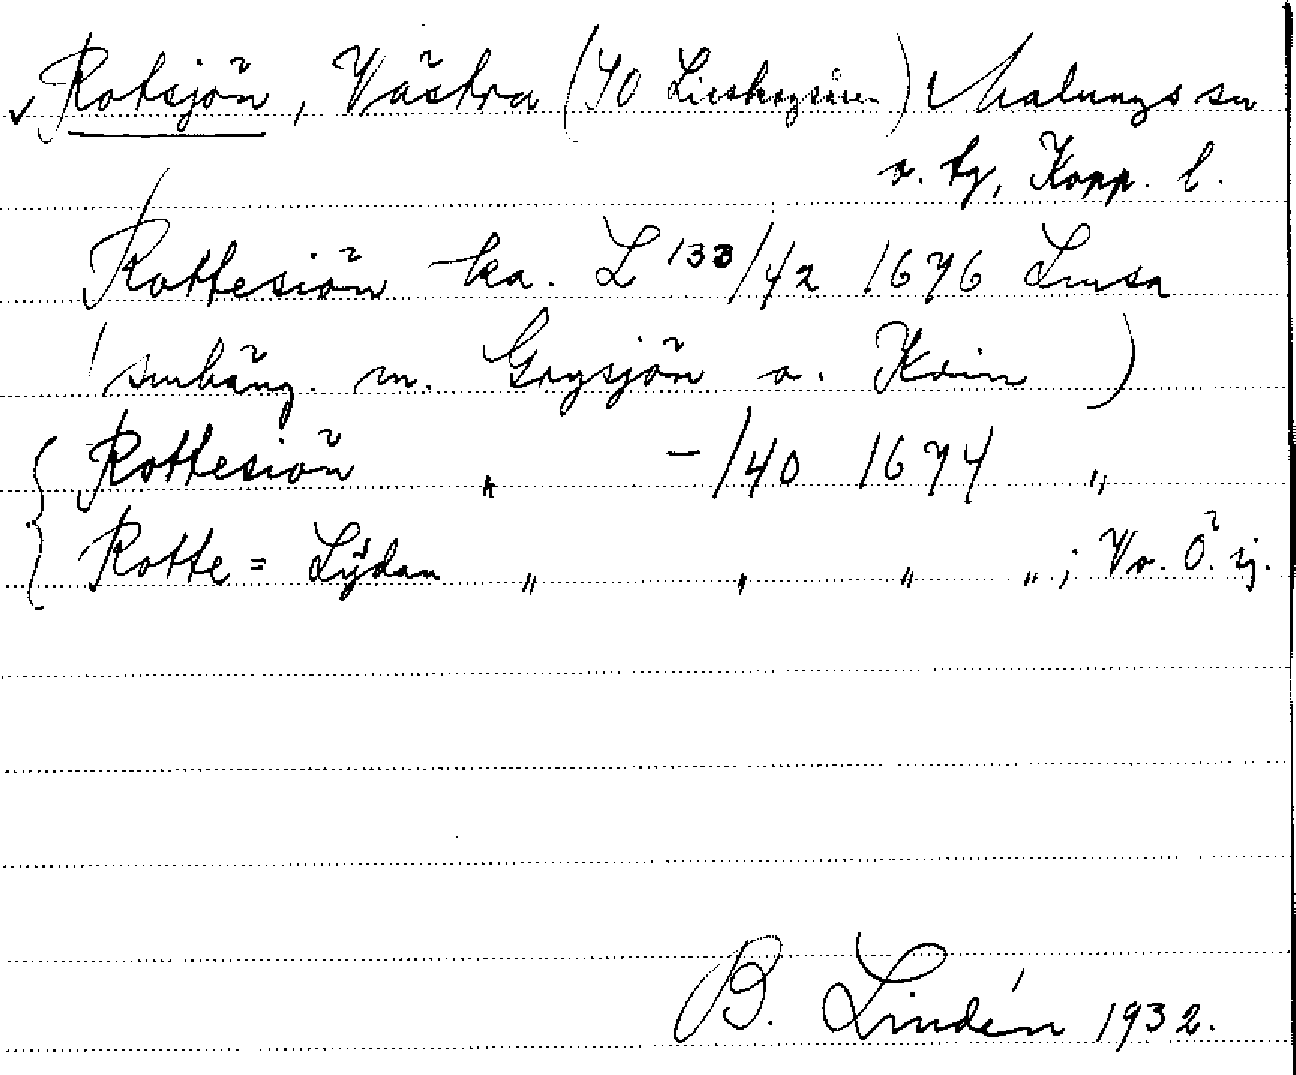 Rotsjön, Västra (SO Lieskogsåsen) Malungs sn
o. tg, Kopp. l.
Rottesiön ka. L 133/42 1676 Lmsa
(smhäng. m. Grysjön o. )
Rottesiön " -/40 1674 "
Rotte = Lÿdan " " " "; Vo. Ö. ij.
B. Lindén 1932.